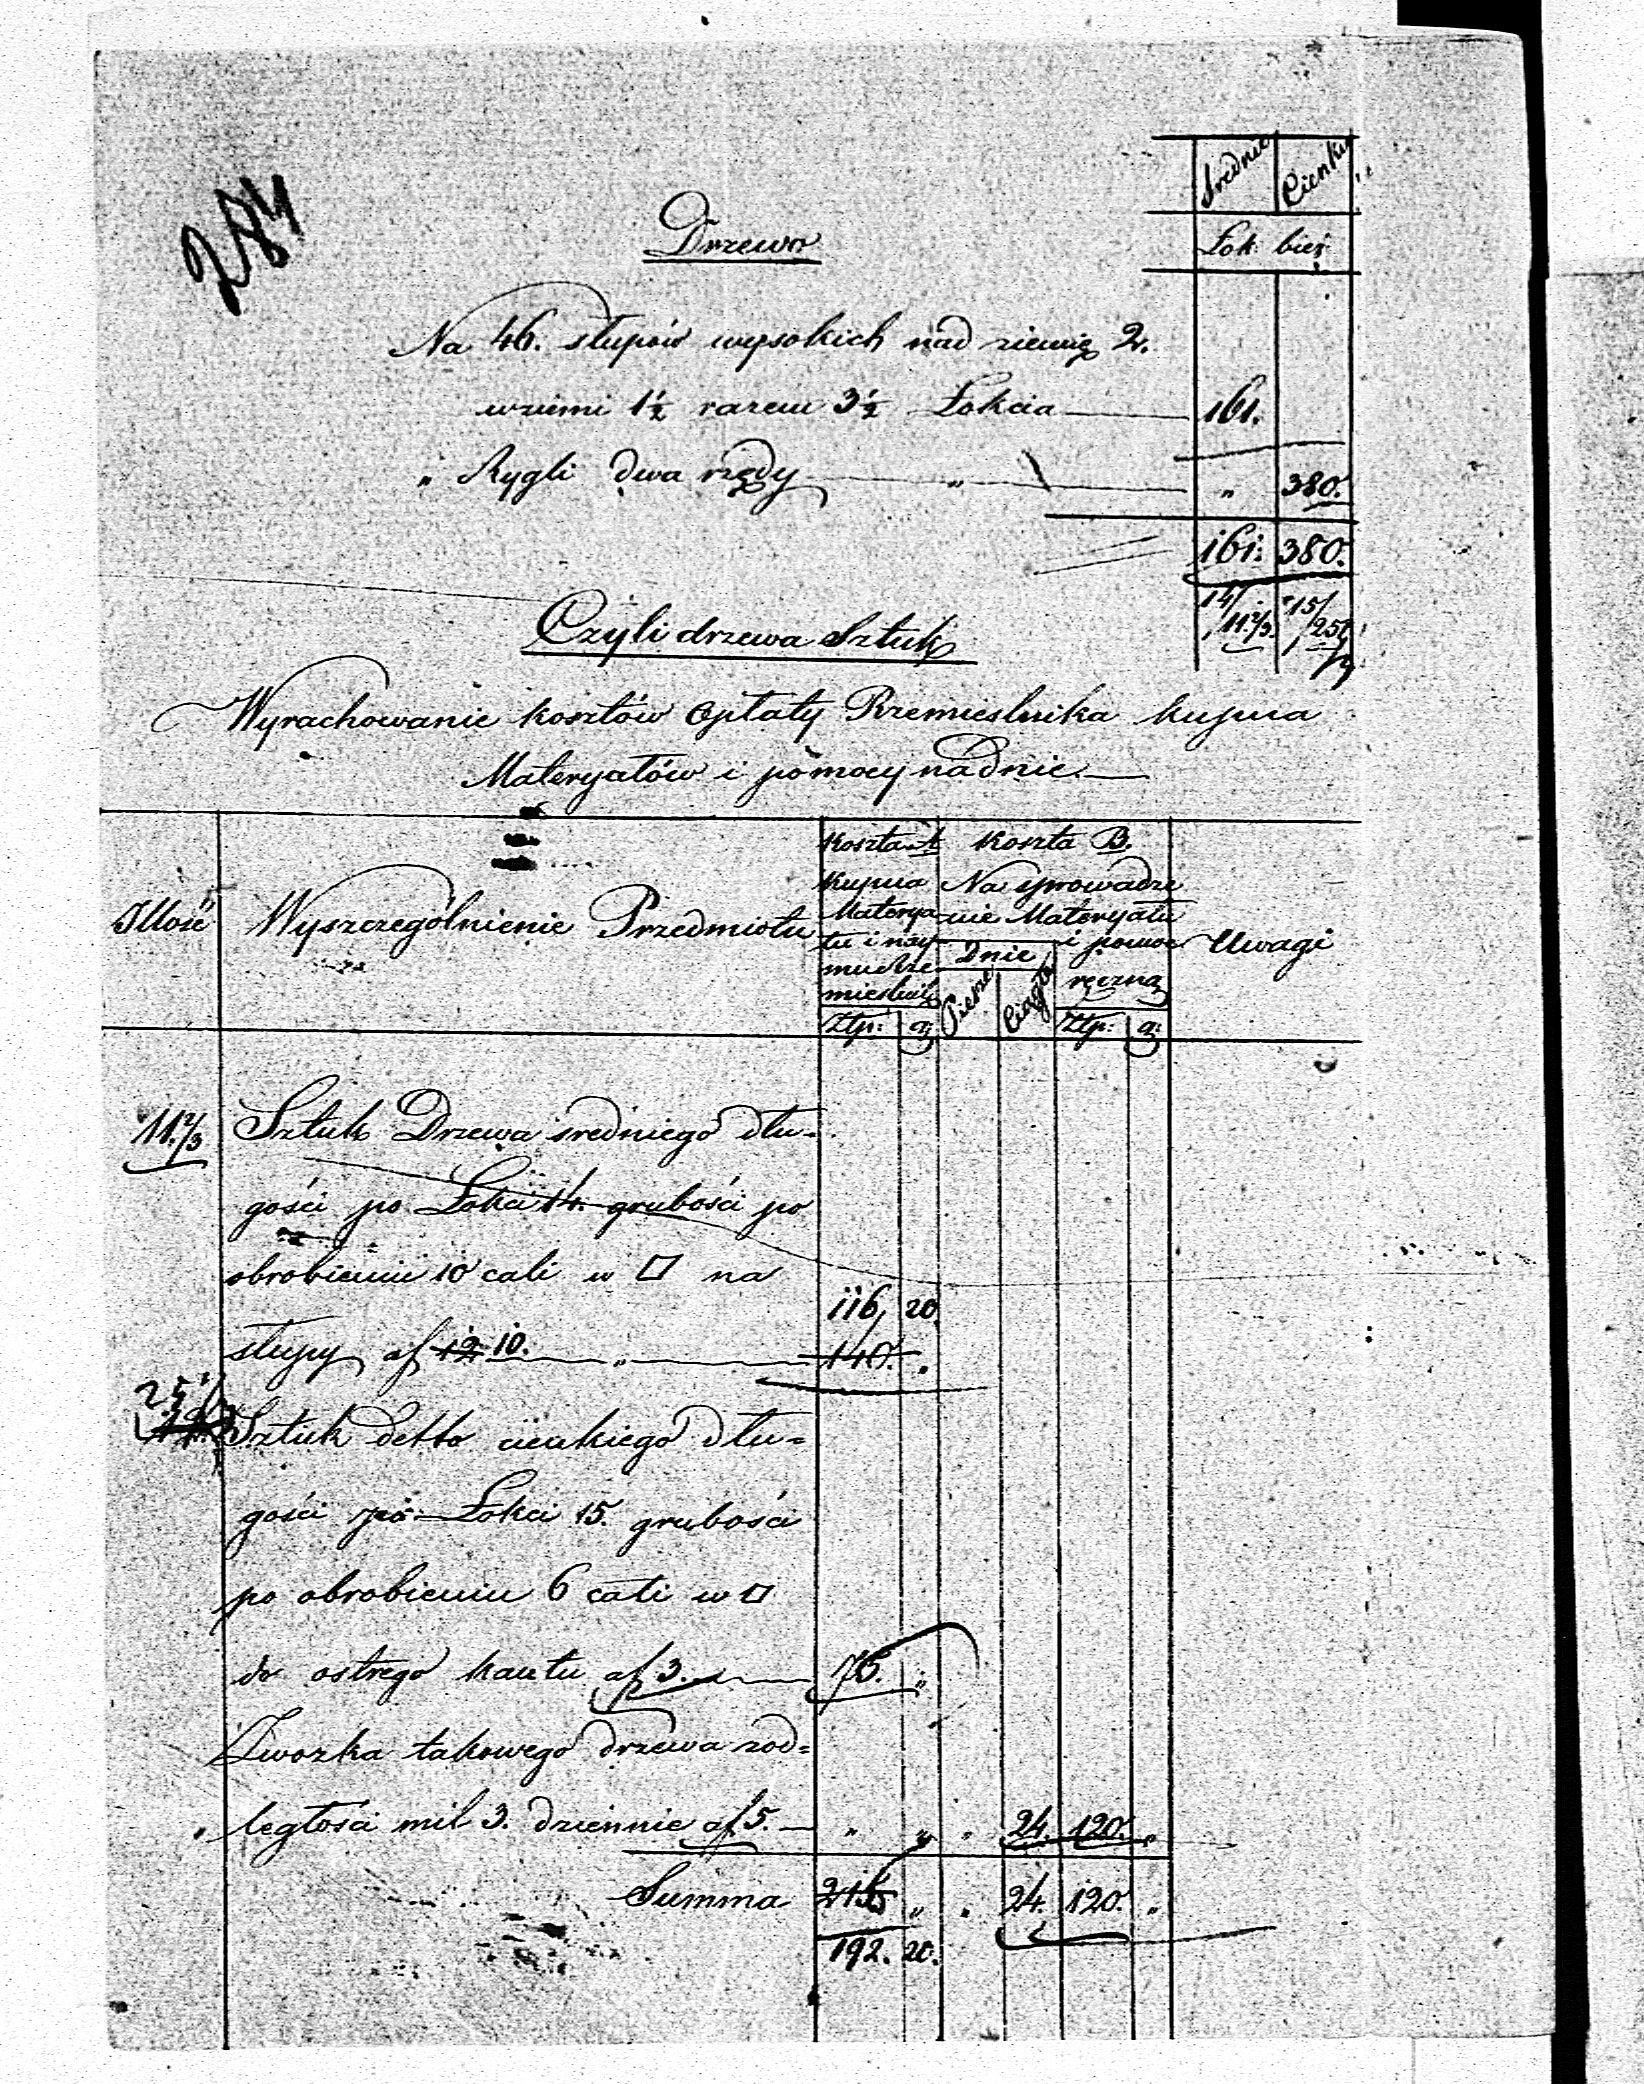 284
Średnie Cienkie
Drzewo
Łok: bież:
Na 46. słupów wysokich nad ziemię 2.
w ziemi 1½ razem 3½ Łokcia 161.
„ Rygli dwa rzędy „ „ 380.
161. 380.
14/11.⅔ 15/25⅓
Czyli drzewa Sztuk
Wyrachowanie kosztów Opłaty Rzemieslnika kupna
Materyałów i pomocy na dnie
Illość
Wyszczególnienie Przedmiotu
Koszta A
kupna
Materya
łu i nay
mu Rze
mieslnik
Ztp: gr
Koszta B.
Na sprowadze
nie Materyału
i pomoc
ręczną
Dnie
Piesze Ciągłe
Ztp: gr
Uwagi
11.⅔ Sztuk Drzewa średniego dłu-
gości po Łokci 14. grubości po
obrobieniu 10 cali w □ na
116, 20.
słupy af 12 10. „ 140. „
25⅓
Sztuk detto cienkiego dłu=
gości po Łokci 15. grubości
po obrobieniu 6 cali w □
do ostrego kantu af 3. 75. „
Zwozka takowego drzewa z od=
„ ległości mil 3. dziennie af 5. „ „ „ 24. 120. „
Summa 215 „ „ 24. 120. „
192. 20.